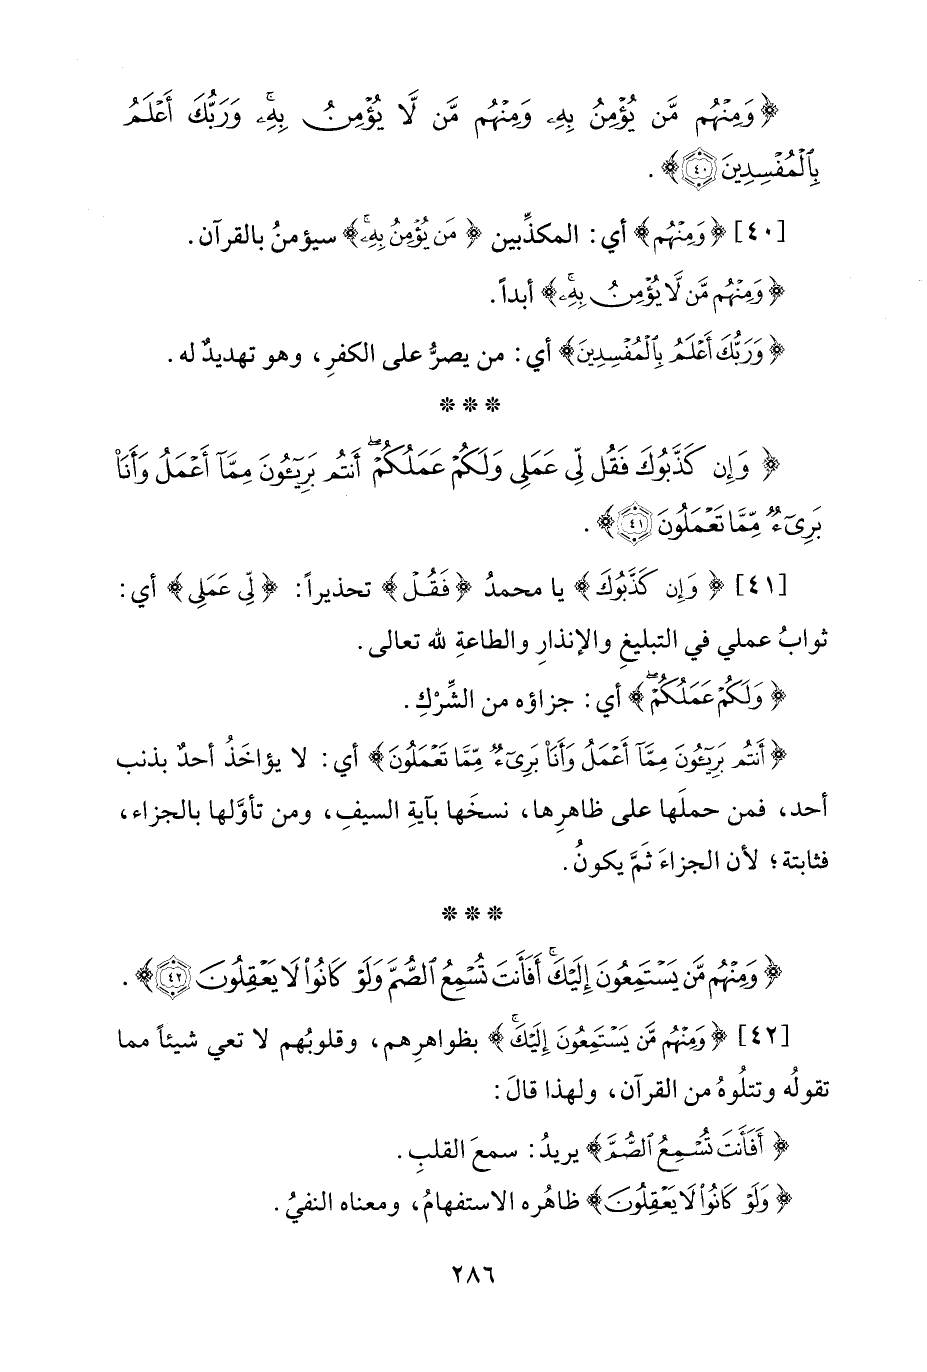 ﴿ وَمِنْهُم مَّن يُؤْمِنُ بِهِۦ وَمِنْهُم مَّن لَّا يُؤْمِنُ بِهِۦۚ وَرَبُّكَ أَعْلَمُ
بِٱلْمُفْسِدِينَ ٤٠﴾ .
[٤٠] ﴿وَمِنْهُم﴾ أي: المكذِّبين ﴿ مَن يُؤْمِنُ بِهِۦۚ﴾ سيؤمنُ بالقرآن.
﴿وَمِنْهُم مَّن لَّا يُؤْمِنُ بِهِۦۚ﴾ أبداً.
﴿وَرَبُّكَ أَعْلَمُ بِٱلْمُفْسِدِينَ﴾ أي: من يصرُّ على الكفرِ، وهو تهديدٌ له.
* * *
﴿ وَإِن كَذَّبُوكَ فَقُل لِّى عَمَلِى وَلَكُمْ عَمَلُكُمْۖ أَنتُم بَرِيٓـُٔونَ مِمَّآ أَعْمَلُ وَأَنَا۠
بَرِىٓءٌ مِّمَّا تَعْمَلُونَ ٤١﴾ .
[٤١] ﴿ وَإِن كَذَّبُوكَ﴾ يا محمدُ ﴿فَقُل﴾ تحذيراً: ﴿لِّى عَمَلِى﴾ أي:
ثوابُ عملي في التبليغِ والإنذارِ والطاعةِ لله تعالى.
﴿ وَلَكُمْ عَمَلُكُمْۖ﴾ أي: جزاؤه من الشِّرْكِ.
﴿أَنتُم بَرِيٓـُٔونَ مِمَّآ أَعْمَلُ وَأَنَا۠ بَرِىٓءٌ مِّمَّا تَعْمَلُونَ﴾ أي: لا يؤاخَذُ أحدٌ بذنب
أحد، فمن حملَها على ظاهرِها، نسخَها بآيةِ السيفِ، ومن تأوَّلها بالجزاء،
فثابتة؛ لأن الجزاءَ ثَمَّ يكونُ.
* * *
﴿ وَمِنْهُم مَّن يَسْتَمِعُونَ إِلَيْكَۚ أَفَأَنتَ تُسْمِعُ ٱلصُّمَّ وَلَوْ كَانُوا۟ لَا يَعْقِلُونَ ٤٢﴾ .
[٤٢] ﴿وَمِنْهُم مَّن يَسْتَمِعُونَ إِلَيْكَۚ ﴾ بظواهرِهم، وقلوبُهم لا تعي شيئاً مما
تقولُه وتتلُوهُ من القرآن، ولهذا قالَ:
﴿ أَفَأَنتَ تُسْمِعُ ٱلصُّمَّ﴾ يريدُ: سمعَ القلبِ.
﴿ وَلَوْ كَانُوا۟ لَا يَعْقِلُونَ﴾ ظاهُره الاستفهامُ، ومعناه النفيُ.
٢٨٦